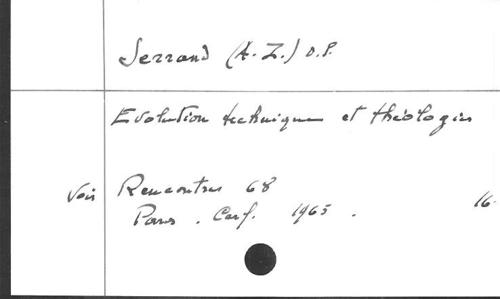 Serrand (A.-Z.) O.P.
Evolution technique et théologies
Voir Rencontres 68
Paris. Cerf. 1965. 16